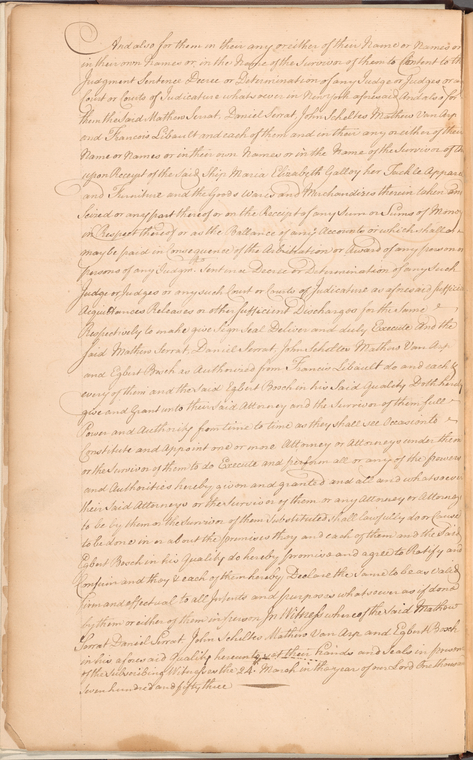 And also for them in their any or either of their Name or Names or
in their own Names or in the Name of the Survivor of them to Consent to the
Judgment Sentence Decree or Determination of any Judge or Judges or any
Court or Courts of Judicature whatsoever in New York aforesaid And also for
them the Said Mathew Serrat, Daniel Serrat John Scholles Mathew Van Arp
and Francois Libault and each of them and in their any or either of their
Name or Names or in their own Names or in the Name of the Survivor of them
upon Receipt of the Said Ship Maria Elizabeth Galloy her Tackle Apparel
and Furniture and the Goods Wares and Merchandizes therein taken and
Seized or any part thereof or on the Receipt of any Sum or Sums of Money
in Respect thereof or as the Ballance of any Accounts or which shall or
may be paid in Consequence of the Arbitration or Award of any person or
persons of any Judgmt. Sentence Decree or Determination of any Such
Judge or Judges or any such Court or Courts of Judicature as aforesaid
Acquittances Releases or other sufficient Discharges for the Same
Respectively to make give Sign Seal Deliver and duly Execute And the
Said Mathew Serrat, Daniel Serrat, John Scholles Mathew Van Arp
and Egbert Bosch as Authorized from Francis Libault do and each &
every of them and the Said Egbert Bosch in his Said Quality Doth hereby
give and Grant unto their Said Attorney and the Survivor of them full
Power and Authority from time to time as they shall see Occasion to
Constitute and Appoint one or more Attorney or Attorneys under them
or the Survivor of them to do Execute and perform all or any of the powers
and Authorities hereby given and granted and all and whatsoever
their Said Attorneys or the Survivor of them or any Attorney or Attorneys
to be by them or the Survivor of them Substituted shall lawfully do or Cause
to be done in or about the premises they and each of them and the Said
Egbert Bosch in his Quality do hereby promise and agree to Ratify and
Confirm and they & each of them hereby Declare the Same to be as valid
firm and effectual to all Intents and purposes whatsoever as if done
by them or either of them in person In Witness whereof the Said Mathew
Serrat Daniel Serrat John Scholles Mathew Van Arp and Egbert Bosch
in his aforesaid Quality hereunto set their hands and Seals in presence
of the Subscribing Witnesses the 24th. March in the year of our Lord One thousand
seven hundred and fifty three